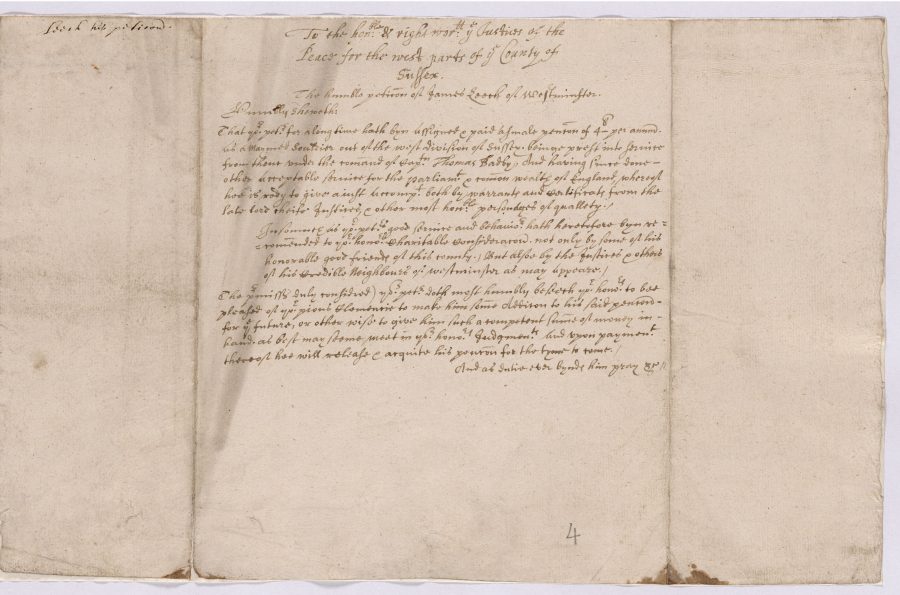 Leech his peticon.
To the honble & right worll ye Justices of the
Peace for the west parts of ye County of
Sussex.
The humble peticon of James Leech of Westminster.
Humbly Sheweth:
That yor petr for a long time hath byn assigned & paid a smale pencon of 4li per annum
as a Maymed Souldier out of the west division of Sussex beinge prest into service
from thence under the comand of Capt Thomas Hadby, And having since done
other acceptable service for the parliamt & comon wealth of England, whereof
hee is redy to give a just Accompt both by warrants and Certificate from the
late lord cheife Justices & other most honble personages of quallety./
Insomuch as yor petrs good service and behavior hath heretofore byn re-
-comended to yor honors Charitable Consideracon. not only by some of his
honorable good friends of this county./ But alsoe by the Justices & others
of his Credible Neighbours of Westminster as may appeare./
The p'misses duly considred) yor petr doth most humbly beseech yor honors to bee
pleased of yor pious Clemencie to make him some Addicon to his said pencon
for ye future, or other wise to give him such a competent sume of money in
hand. as best may seeme meet in yor honors Judgments and upon payment
thereof hee will release & acquite his pencon for the tyme to come./
And as dutie ever bynds him pray &c//
4